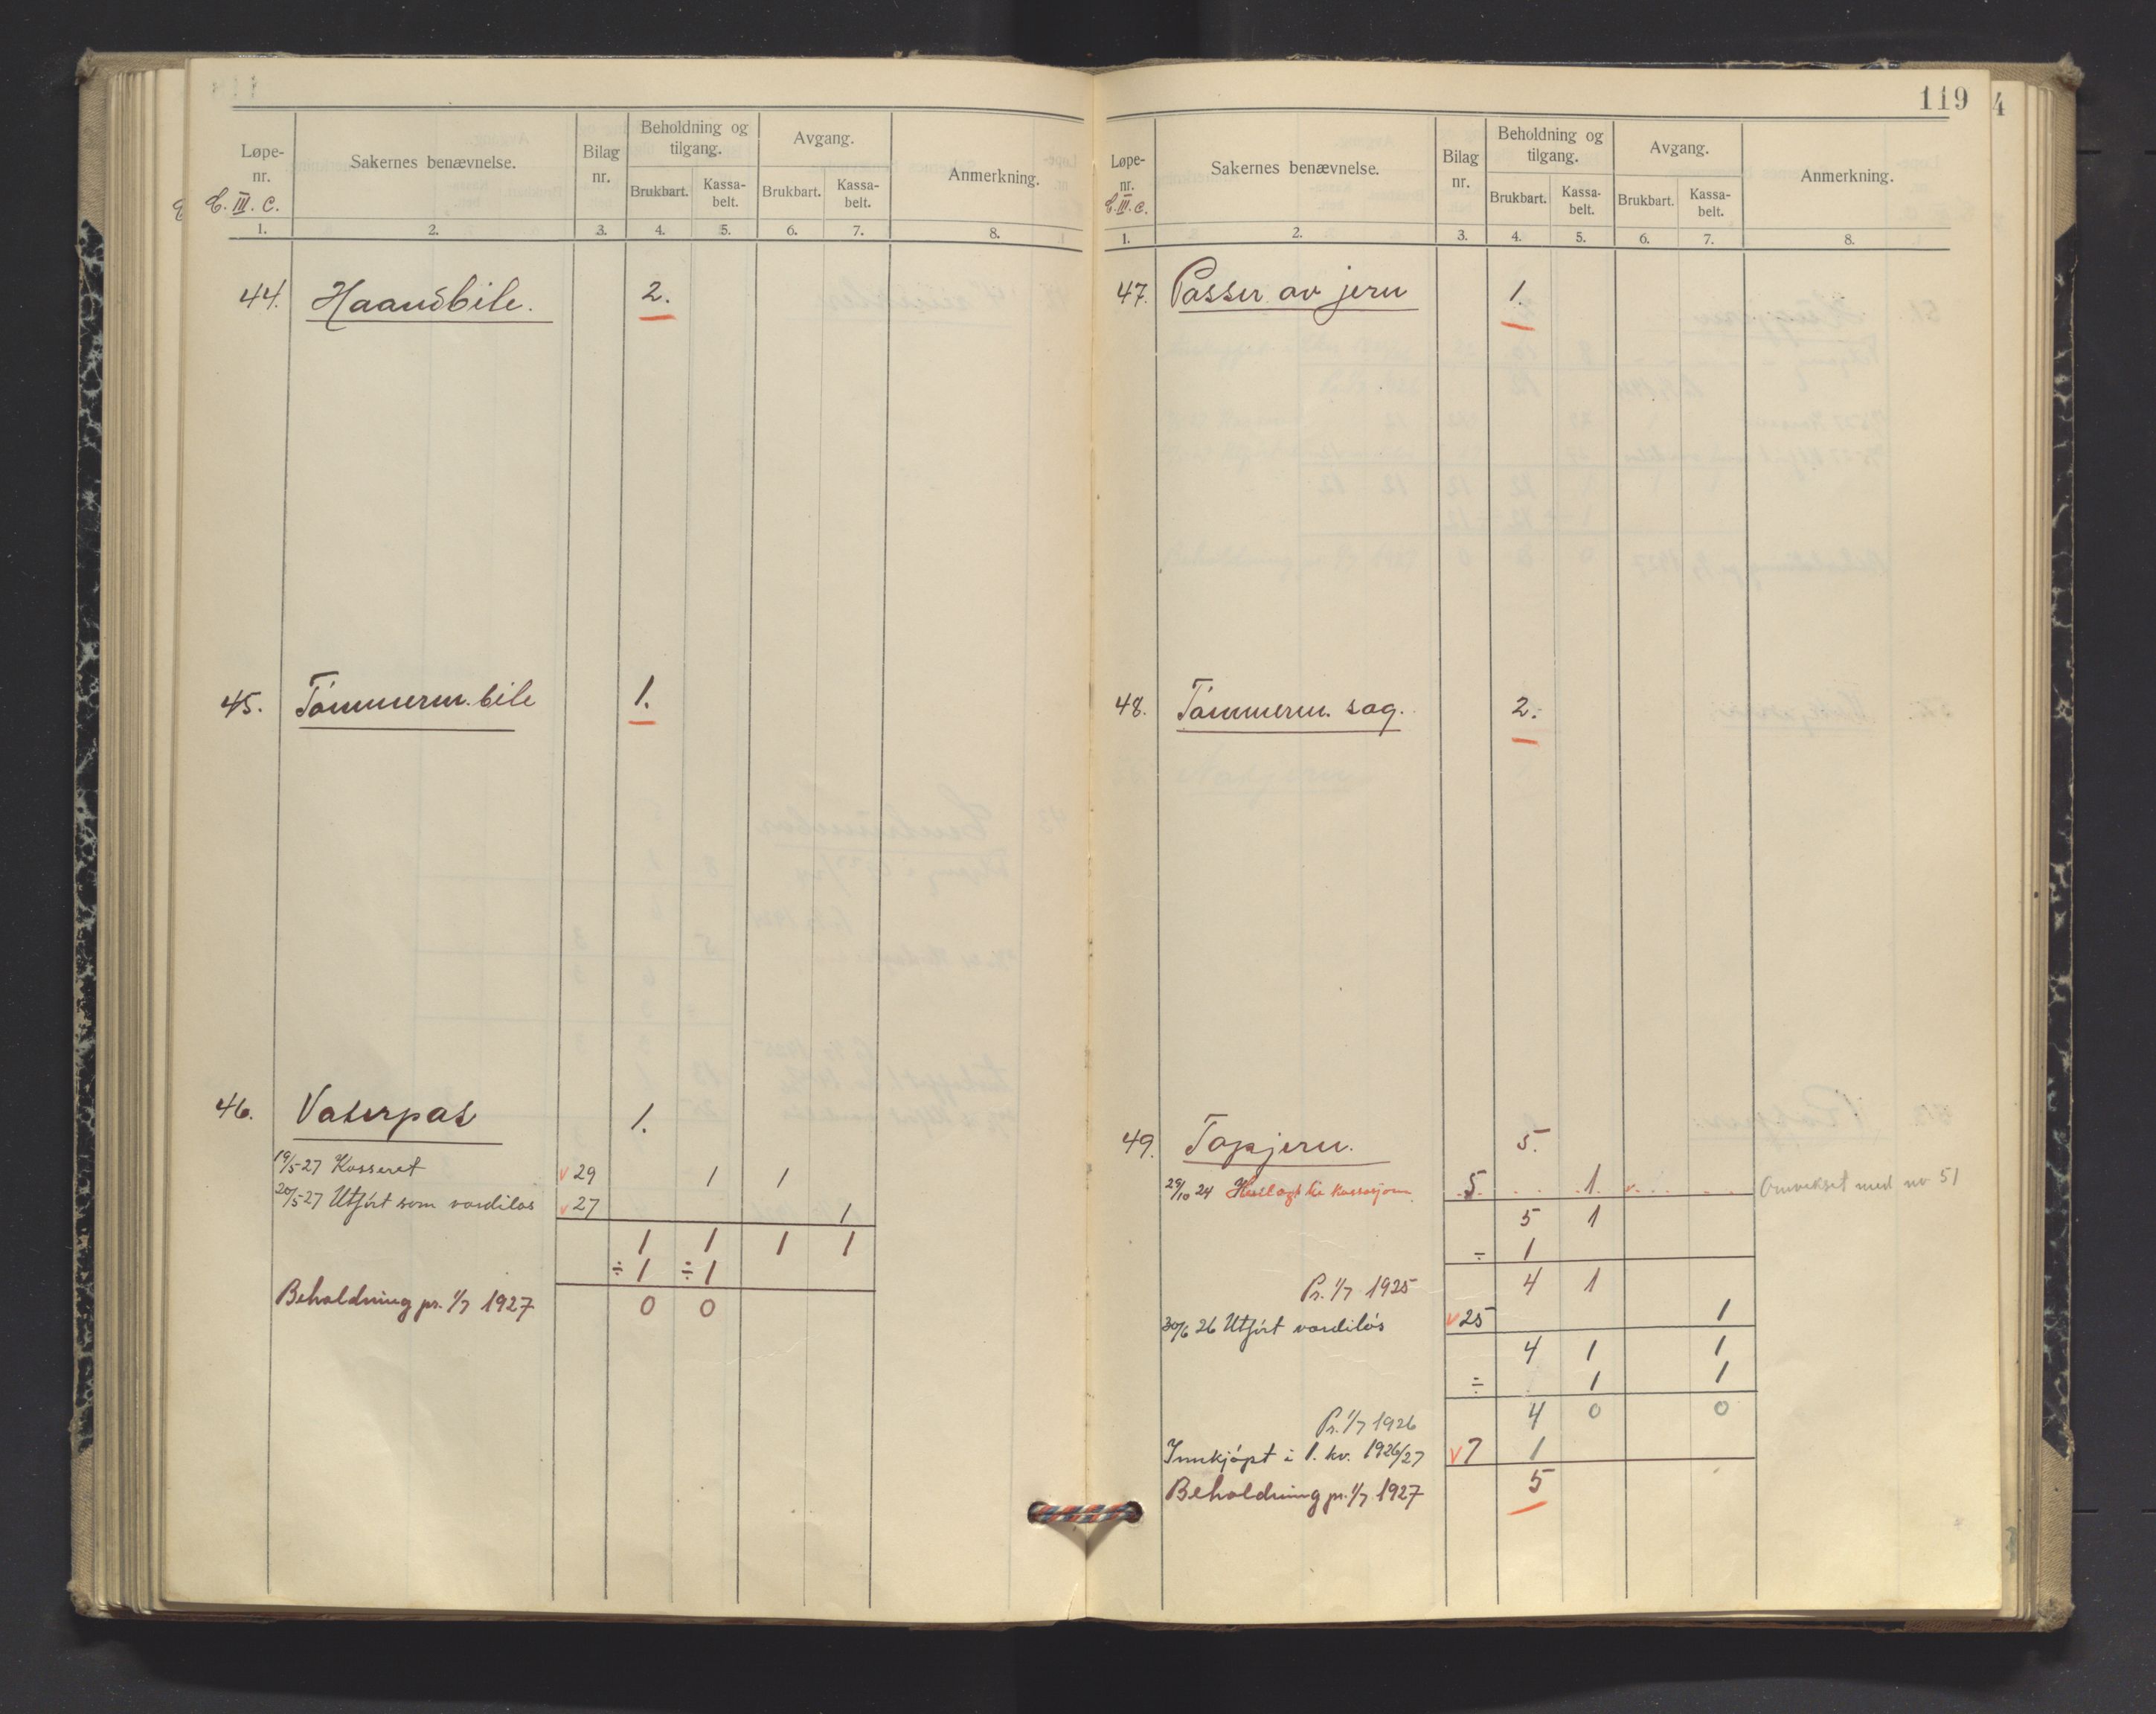 Løpe-nr. Sakernes benævnelse. Bilag nr. Beholdning og tilgang. Avgang. Anmerkning.
Brukbart. Kassa-belt. Brukbart. Kassa-belt.
C. III. c.
1. 2. 3. 4. 5. 6. 7. 8.
44. Haandbile. 2.
45. Tømmerm. bile 1.
46. Vaterpas 1.
19/5-27 Kassert v 29 1 1
20/5-27 Utført som verdiløs v 27 1
1 1 1 1
÷ 1 ÷ 1
Beholdning pr. 1/7 1927 0 0
119
4
Løpe-nr. Sakernes benævnelse. Bilag nr. Beholdning og tilgang. Avgang. Anmerkning.
Brukbart. Kassa-belt. Brukbart. Kassa-belt.
C. III. c.
1. 2. 3. 4. 5. 6. 7. 8.
47. Passer av jern 1.
48. Tømmerm. sag. 2.
49. Tapjern. 5.
29/10 24 Henlagt til kassasjon. 5. 1. med nr 51
5 1
÷ 1
Pr. 1/7 1925 4 1
30/6 26 Utført verdiløs v 25 1
4 1 1
÷ 1 1
Pr. 1/7 1926 4 0 0
Innkjøpt i 1. kv. 1926/27 v 7 1
Beholdning pr. 1/7 1927 5